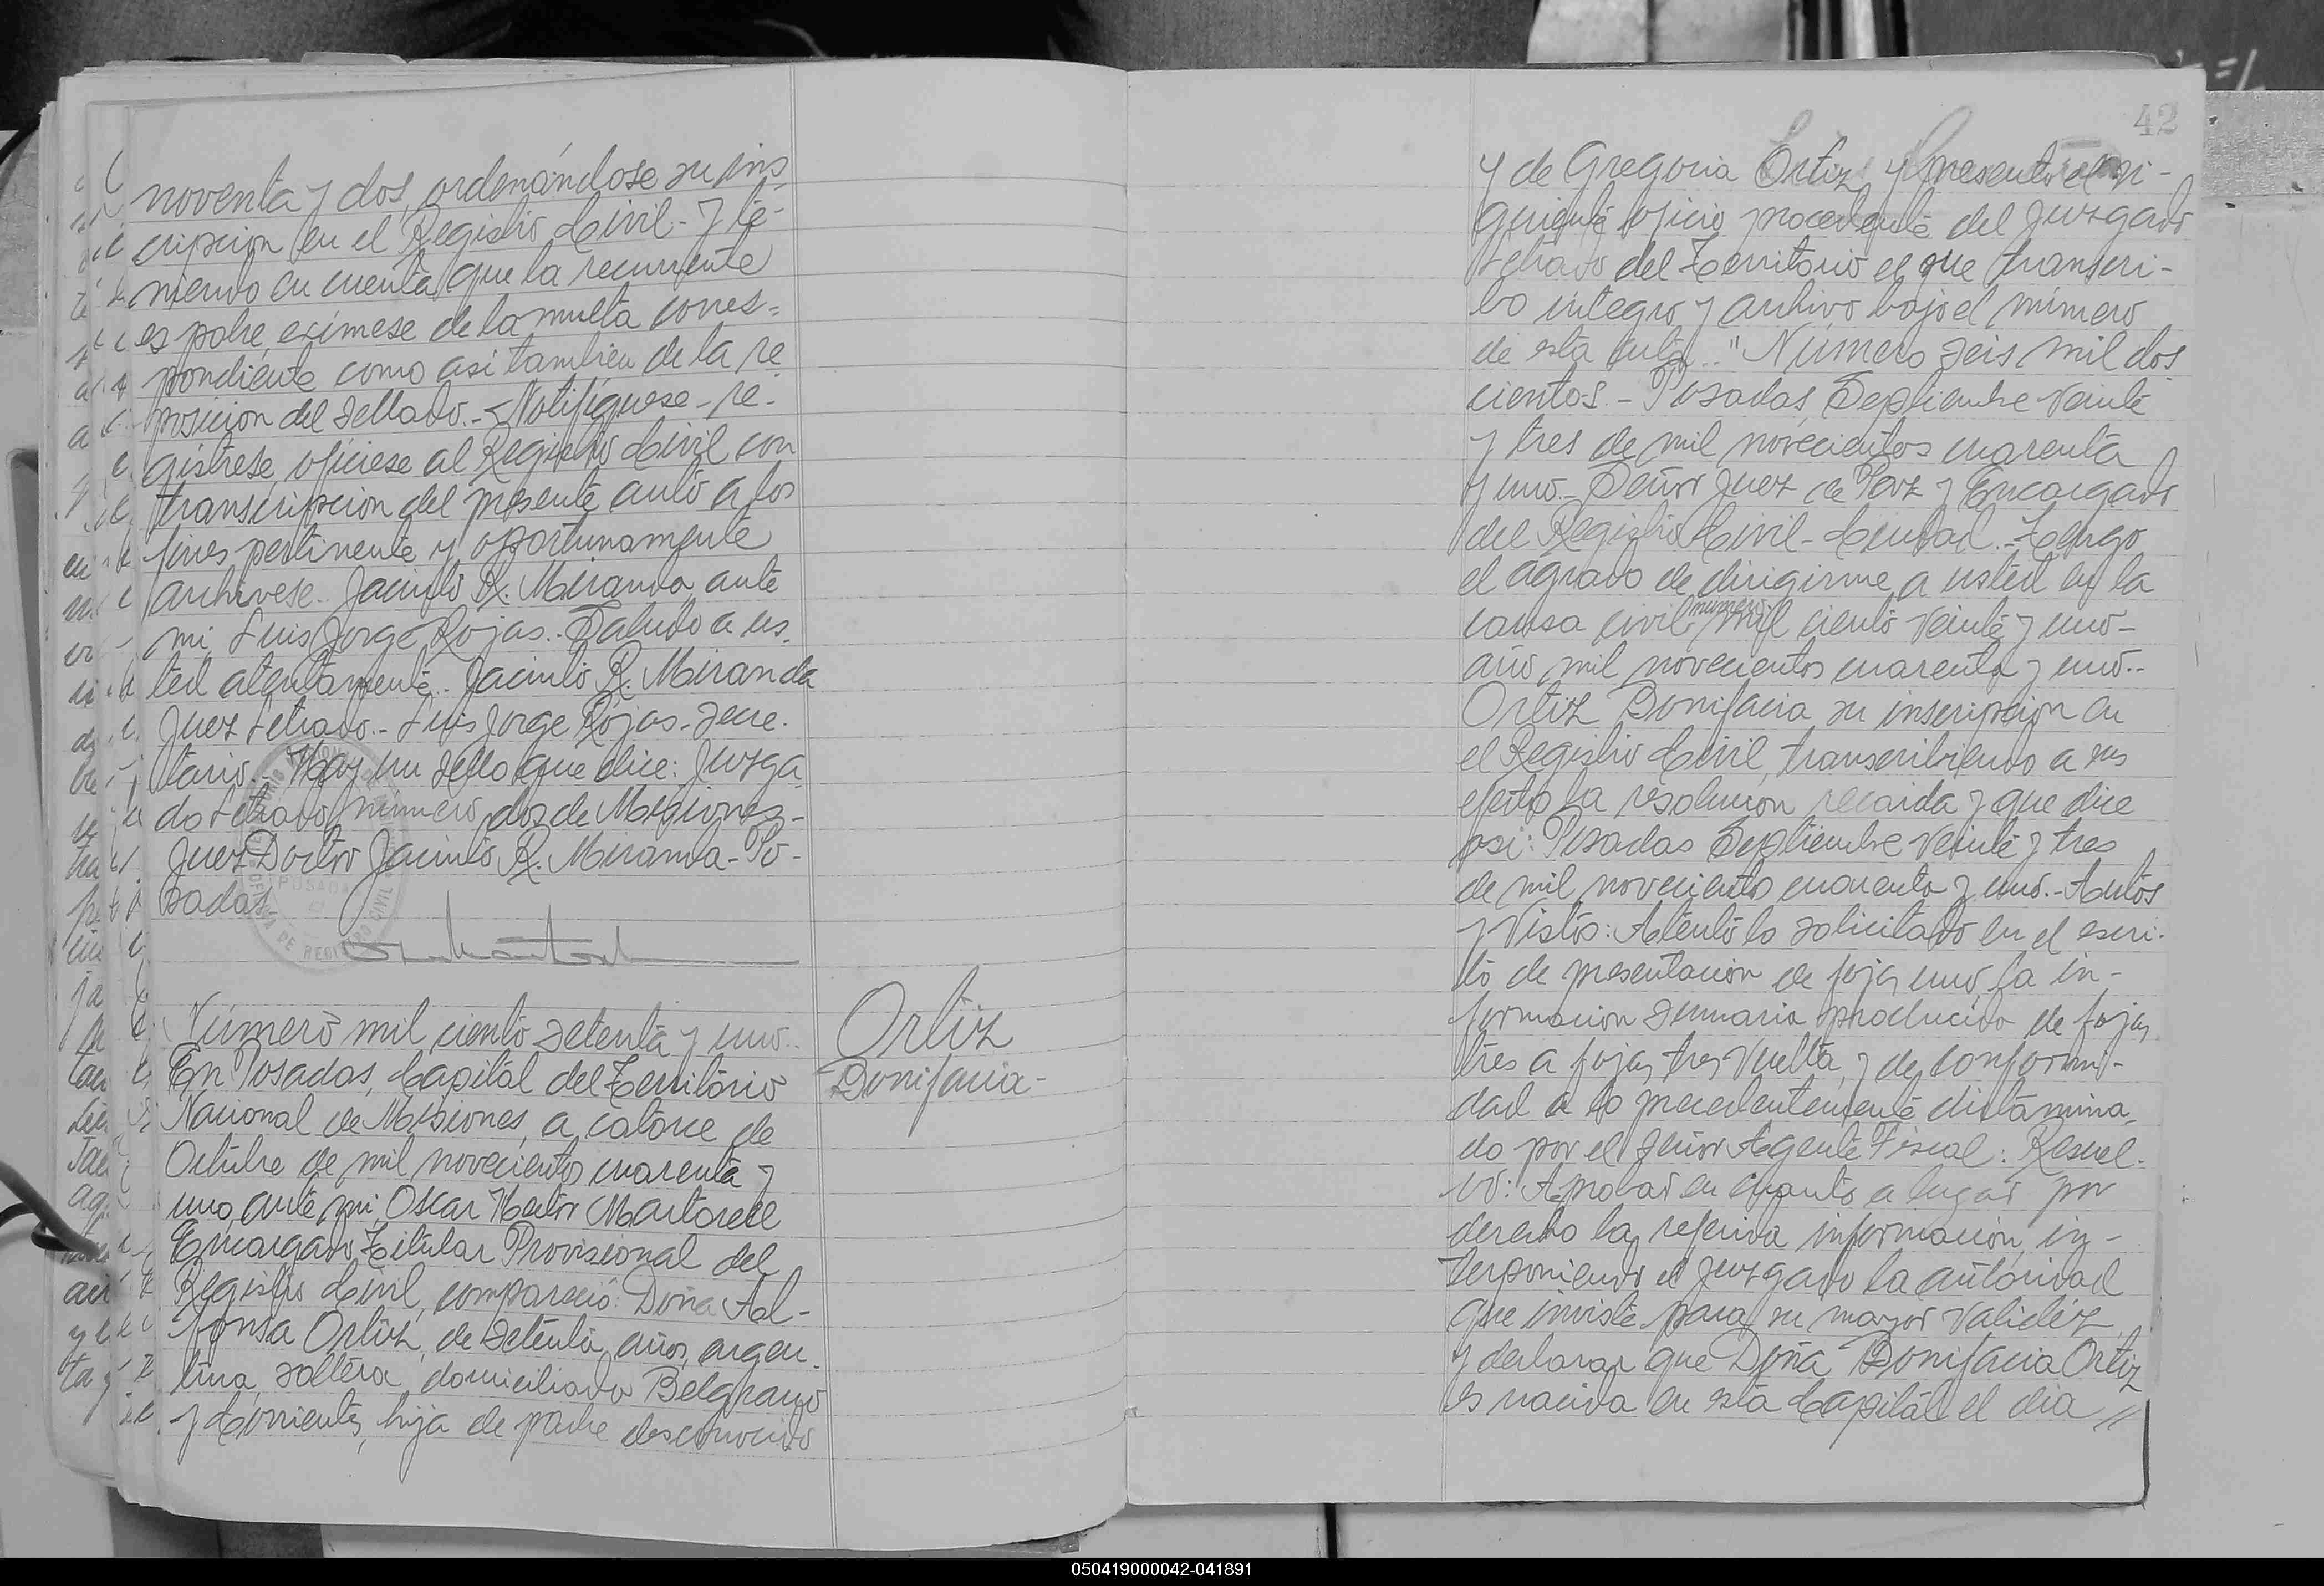 noventa y dos, ordenándose su ins-
cripcion en el Registro Civil.- Y te-
niendo en cuenta que la recurrente
es pobre, exímese de la multa corres=
pondiente como asi tambien de la re-
posicion del sellado.- Notifíquese - re-
gístrese, ofíciese al Registro Civil con
transcripcion del presente auto a los
fines pertinente y oportunamente
archívese.. Jacinto R. Miranda, ante
mi, Luis Jorge Rojas.. Saludo a us-
ted atentamente.. Jacinto R. Miranda
Juez Letrado.- Luis Jorge Rojas - Secre-
tario.- Hay un sello que dice: Juzga-
do Letrado número dos de Misiones-
Juez Doctor Jacinto R. Miranda - Po-
sadas.
POSADAS
OFICINA DE REGISTRO CIVIL
Número mil ciento setenta y uno..
En Posadas, Capital del Territorio
Nacional de Misiones, a catorce de
Octubre de mil novecientos cuarenta y
uno, ante mi, Oscar Hector Martorell
Encargado Titular Provisional del
Registro Civil, compareció: Doña Al-
fonsa Ortiz, de setenta años, argen-
tina, soltera, domiciliada Belgrano
y Corrientes, hija de padre desconocido
Ortiz
Bonifacia-
42
y de Gregoria Ortiz y presentó el si-
guiente oficio procedente del Juzgado
Letrado del Territorio el que transcri-
bo integro y archivo bajo el número
de esta acta.. "Número seis mil dos
cientos.- Posadas, Septiembre veinte
y tres de mil novecientos cuarenta
y uno.- Señor Juez de Paz y Encargado
del Registro Civil - Ciudad.- Tengo
el agrado de dirigirme a usted en la
causa civil número mil ciento veinte y uno-
año mil novecientos cuarenta y uno..
Ortiz Bonifacia su inscripcion en
el Registro Civil, transcribiendo a sus
efecto la resolucion recaida y que dice
asi: Posadas Septiembre veinte y tres
de mil novecientos cuarenta y uno.- Autos
y Vistos: Atento lo solicitado en el escri-
to de presentacion de foja uno, la in-
formacion sumaria producida de fojas
tres a fojas tres vuelta, y de conformi-
dad a lo precedentemente dictamina-
do por el señor Agente Fiscal: Resuel-
vo: Aprobar en cuanto a lugar por
derecho la referida informacion, in-
terponiendo el Juzgado la autoridad
que inviste para su mayor validéz
y declarar que Doña Bonifacia Ortiz
es nacida en esta Capital el dia //
050419000042-041891